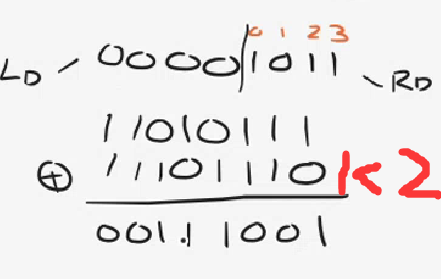 0 1 2 3
LD 0000|1011 RD
11010111
⊕ 11101110 K2
00111001